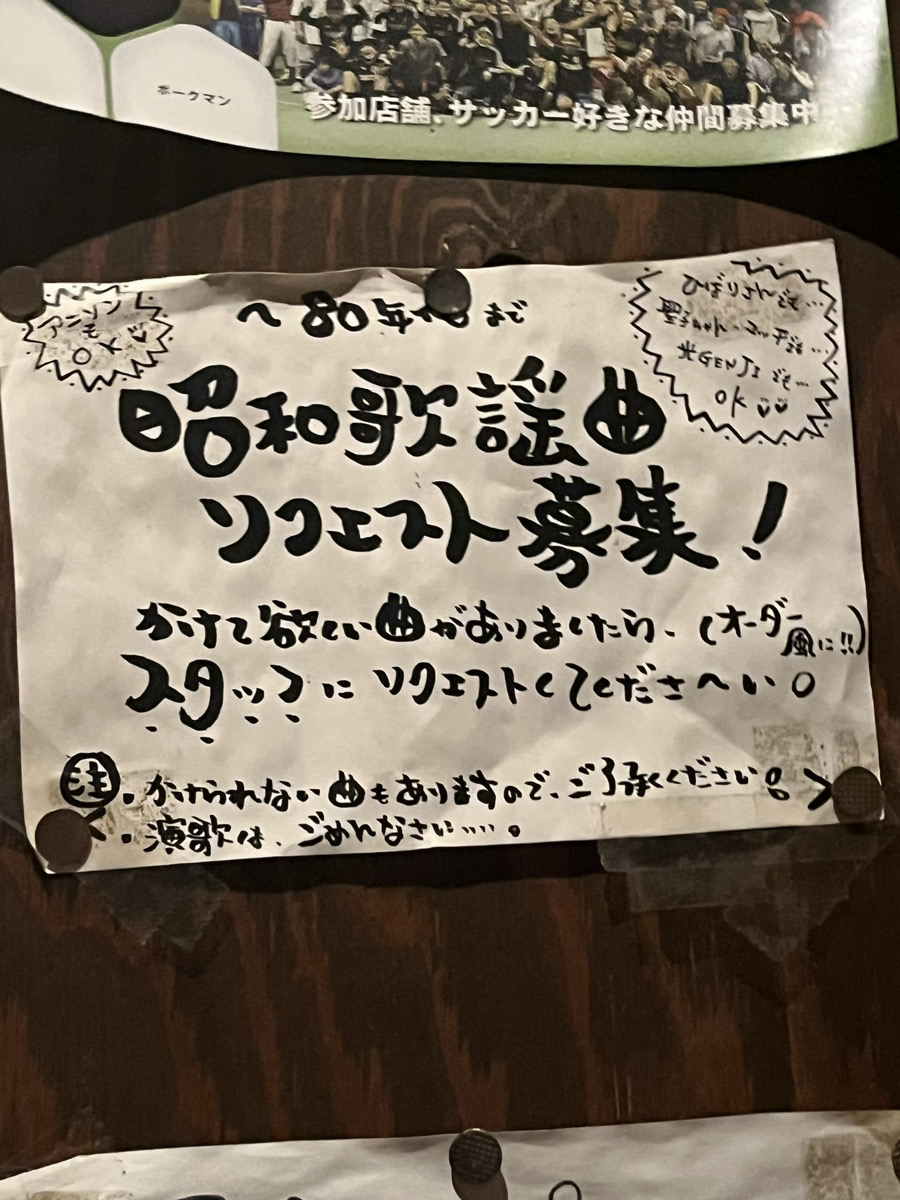 ポークマン
参加店舗、サッカー好きな仲間募集中
アニソン
も
OK
〜80年代まで
ひばりさんも…
聖子ちゃん・マッチも…
光GENJIも…
OK
昭和歌謡曲
リクエスト募集!
かけて欲しい曲がありましたら、(オーダー
風に!!)
スタッフにリクエストしてくださ〜い。
注・かけられない曲もありますので、ご了承ください。
・演歌は、ごめんなさい……。